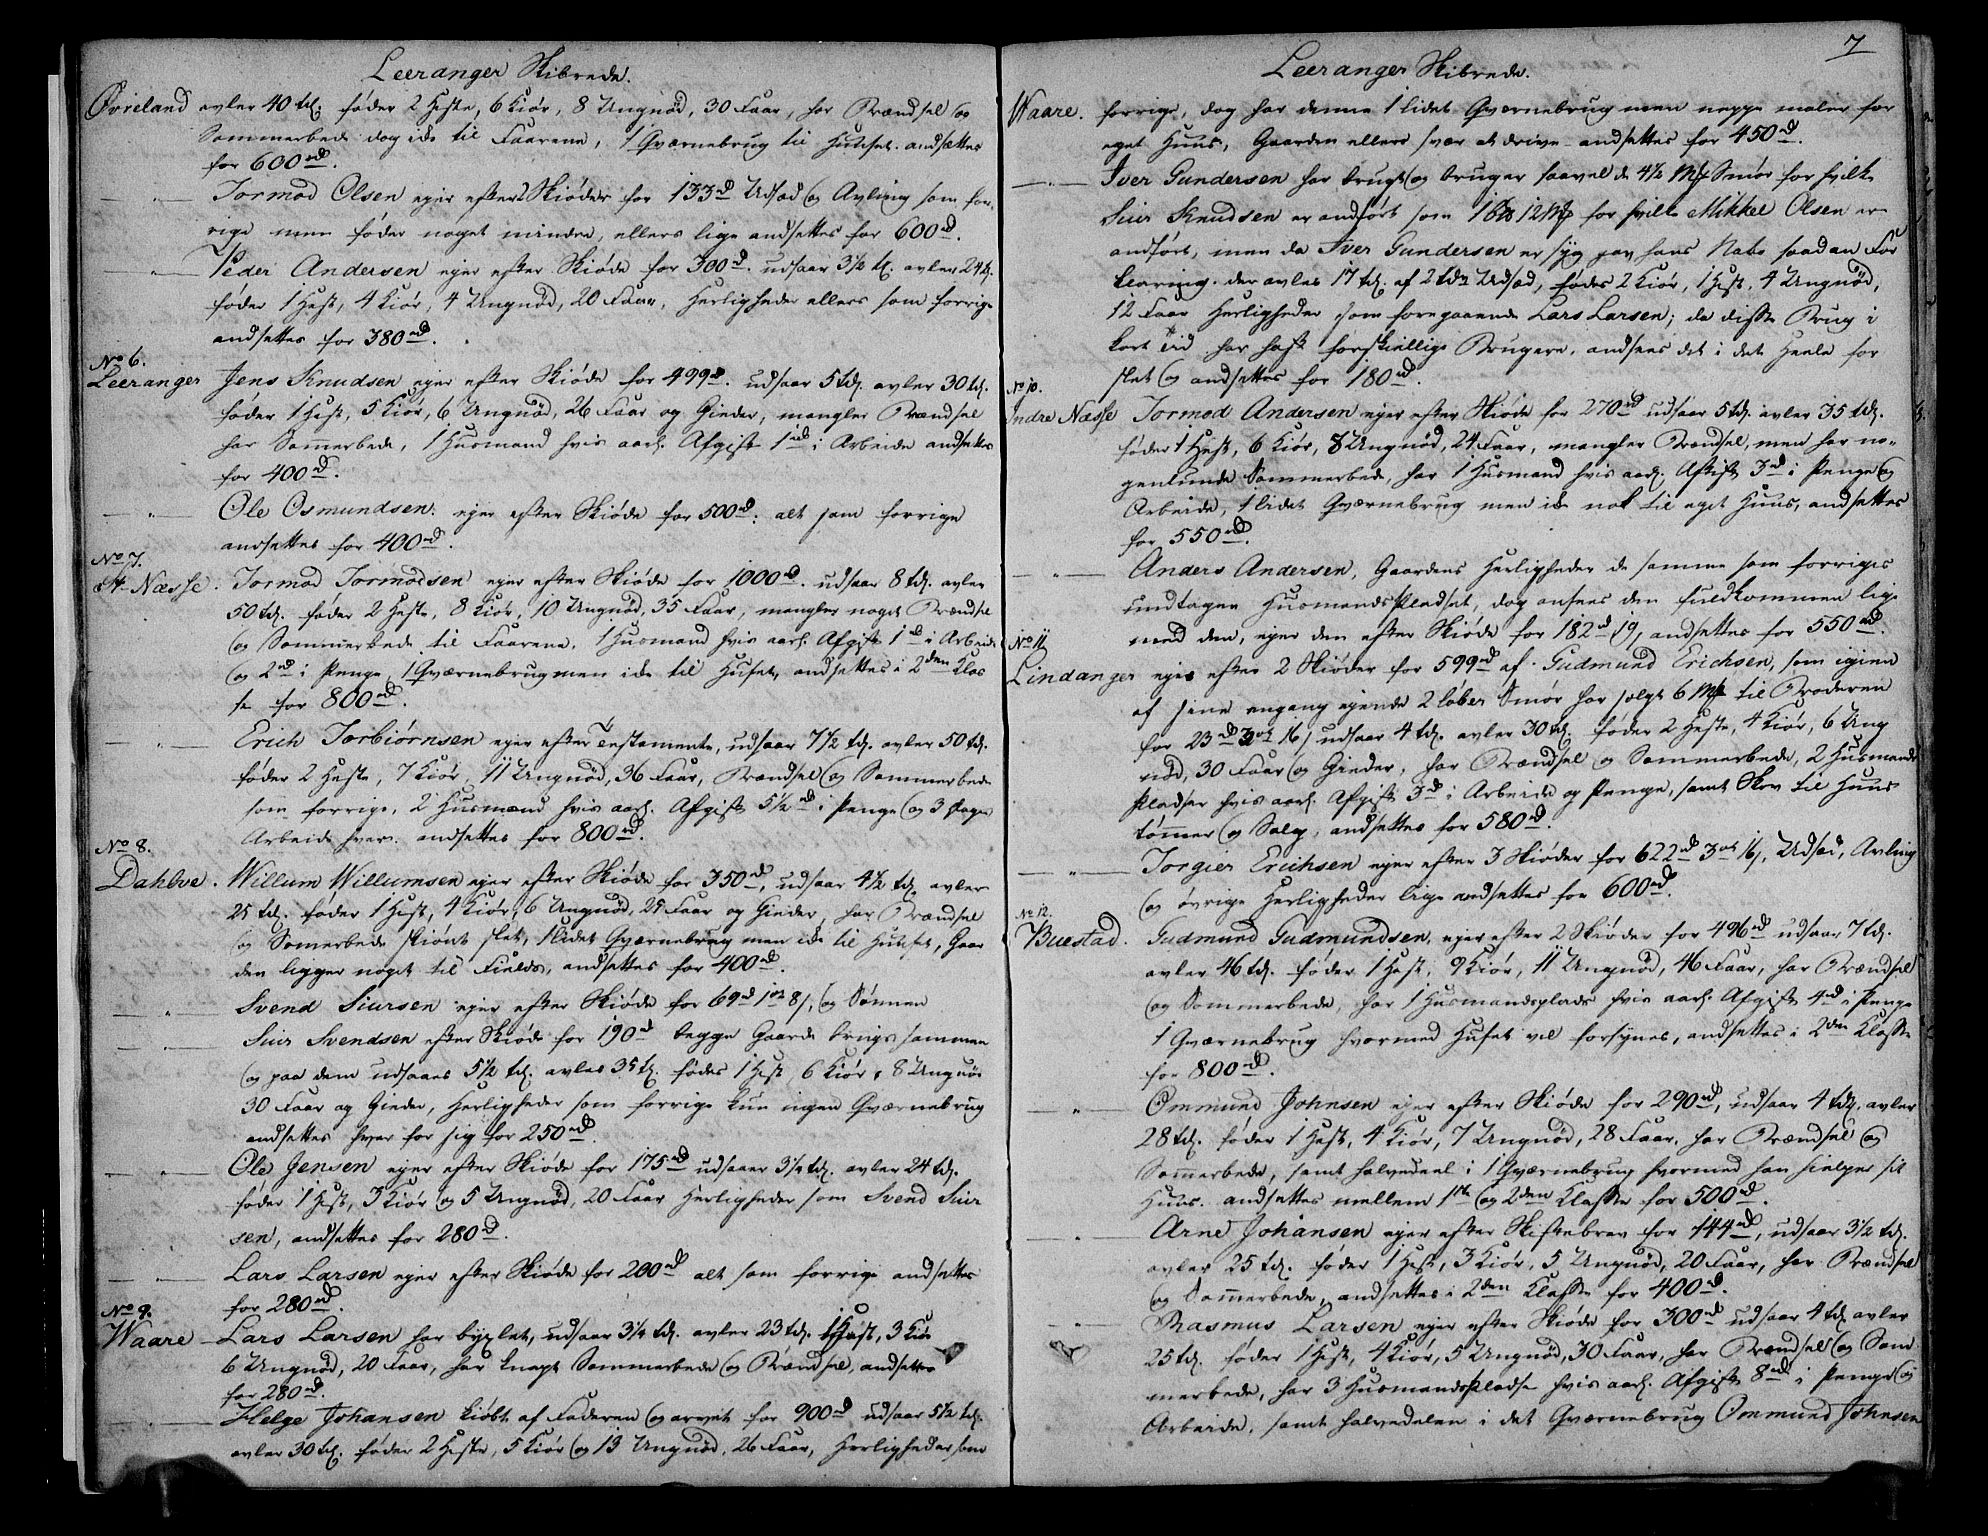 Leeranger Skibrede.
Øvreland avler 40 td. føder 2 Heste, 6 Kiør, 8 Ungnød, 30 Faar, har Brændsel og
Sommerbede dog icke til Faarene, 1 Qværnebrug til Huuset. andsættes
for 600 rd.
— " — Tormod Olsen ejer efter Skiøder for 133 rd Udsæd og Avling som for-
rige men føder noget mindre, ellers lige andsettes for 600 rd.
— " — Peder Andersen ejer efter Skiøde for 300 rd. udsaar 3½ td. avler 24 td.
føder 1 Hest, 4 Kiør, 4 Ungnød, 20 Faar, Herligheder ellers som forrige
andsettes for 380 rd.
No 6.
Leeranger Jens Knudsen ejer efter Skiøde for 499 rd. udsaar 5 td. avler 30 td.
føder 1 Hest, 5 Kiør, 6 Ungnød, 26 Faar og Gieder, mangler Brændsel
har Sommerbede, 1 Husmand hvis aarl. Afgift 1 rd i Arbeide andsettes
for 400 rd.
— " — Ole Osmundsen ejer efter Skiøde for 500 rd: alt som forrige
andsettes for 400 rd.
No 7.
St. Næsse. Tormod Tormodsen ejer efter Skiøde for 1000 rd. udsaar 8 td. avler
50 td. føder 2 Heste, 8 Kiør, 10 Ungnød, 35 Faar, mangler noget Brændsel
og Sommerbede til Faarene, 1 Husmand hvis aarl. Afgift 1 rd i Arbeide
og 2 rd i Penge, 1 Qværnebrug men icke til Huset, andsettes i 2den Klas
se for 800 rd.
— " — Erich Torbiørnsen ejer efter Testamente, udsaar 7½ td. avler 50 td.
føder 2 Heste, 7 Kiør, 11 Ungnød, 36 Faar, Brændsel og Sommerbede
som forrige, 2 Husmænd hvis aarl. Afgift 5½ rd i Penge og 3 Dages
Arbeide hver. andsettes for 800 rd.
No 8.
Dahlve. Willum Willumsen ejer efter Skiøde for 350 rd, udsaar 4½ td. avler
25 td. føder 1 Hest, 4 Kiør, 6 Ungnød, 25 Faar og Gieder, har Brændsel
og Somerbede skiønt slet, 1 lidet Qværnebrug men icke til Huuset, Gaar
den ligger noget til Fields, andsettes for 400 rd.
— " — Svend Siursen ejer efter Skiøde for 69 rd 1 ort 8 s, og Sønnen
— " — Siur Svendsen efter Skiøde for 190 rd begge Gaarde bruges sammen
og paa dem udsaaes 5½ td. avles 35 td. fødes 1 Hest, 6 Kiør, 8 Ungnød
30 Faar og Gieder, Herligheder som forrige kun ingen Qværnebrug
andsettes hver for sig for 250 rd.
— " — Ole Jensen ejer efter Skiøde for 175 rd udsaaer 3¼ td. avler 24 td.
føder 1 Hest, 3 Kiør og 5 Ungnød, 20 Faar Herligheder som Svend Siur
sen, andsettes for 280 rd.
— " — Lars Larsen ejer efter Skiøde for 200 rd alt som forrige andsettes
for 280 rd.
No 9.
Waare — Lars Larsen har byxlet, udsaar 3¼ td. avler 23 td. 1 Hest, 3 Kiør
6 Ungnød, 20 Faar, har knapt Sommerbede og Brændsel, andsettes
for 280 rd.
— " — Helge Johansen kiøbt af Faderen og arvet for 900 rd udsaar 5½ td.
avler 30 td. føder 2 Heste, 5 Kiør og 13 Ungnød, 26 Faar, Herligheder som
7
Leeranger Skibrede.
Waare. forrige, dog har denne 1 lidet Qværnebrug men neppe maler for
eget Huus, Gaarden ellers svær at drive andsettes for 450 rd.
— " — Iver Gundersen har brugt og bruger saavel de 4½ Mk Smør for hvilke
Siur Knudsen er andført som 1 12 Mk for hvilke Mikkel Olsen er
andført, men da Iver Gundersen er syg gav hans Nabo saadan For
klaring. der avles 17 td. af 2 tdr Udsæd, fødes 2 Kiør, 1 Hest, 4 Ungnød,
12 Faar Herligheder som foregaaende Lars Larsen; da disse Brug i
kort tiid har haft forskiellige Brugere, andsees det i det Heele for
slet og andsettes for 180 rd.
No 10.
Indre Næsse Tormod Andersen ejer efter Skiøde for 270 rd udsaar 5 td. avler 35 td.
føder 1 Hest, 6 Kiør, 8 Ungnød, 24 Faar, mangler Brændsel, men har no-
genlunde Sommerbede, har 1 Husmand hvis aarl. Afgift 3 rd i Penge og
Arbeide, 1 lidet Qværnebrug men icke nok til eget Huus, andsettes
for 550 rd.
— " — Anders Andersen, Gaardens Herligheder de samme som forriges
undtagen Husmands Pladset, dog ansees den fuldkommen lige
med den, ejer den efter Skiøde for 182 rd 19, andsettes for 550 rd.
No 11
Lindanger ejes efter 2 Skiøder for 599 rd af Gudmund Erichsen, som igien
af sine engang ejende 2 løber Smør har solgt 6 Mk til Broderen
for 23 rd 3 ort 16 s, udsaar 4 td. avler 30 td. føder 2 Heste, 4 Kiør, 6 Ung
nød, 30 Faar og Gieder, har Brændsel og Sommerbede, 2 Husmands
Pladser hvis aarl. Afgift 3 rd i Arbeide og Penge, samt Skov til Huus
tømmer og Salg, andsettes for 580 rd.
— " — Torgier Erichsen ejer efter 3 Skiøder for 622 rd 3 ort 16 s, Udsæd, Avling
og øvrige Herligheder lige andsettes for 600 rd.
No 12.
Buestad. Gudmund Gudmundsen, ejer efter 2 Skiøder for 496 rd udsaar 7 td.
avler 46 td. føder 1 Hest, 9 Kiør, 11 Ungnød, 46 Faar, har Brændsel
og Sommerbede, har 1 Husmandsplads hvis aarl. Afgift 4 rd i Penge
1 Qværnebrug hvormed Huset vel forsynes, andsettes i 2den Klasse
for 800 rd.
— " — Ommund Johnsen ejer efter Skiøde for 290 rd, udsaar 4 td. avler
28 td. føder 1 Hest, 4 Kiør, 7 Ungnød, 28 Faar, har Brændsel og
Sommerbede, samt halvedeel i 1 Qværnebrug hvormed han hielper sit
Huus. andsettes mellem 1ste og 2den Klasse for 500 rd.
— " — Arne Johansen ejer efter Skiftebrev for 144 rd, udsaar 3½ td.
avler 25 td. føder 1 Hest, 3 Kiør, 5 Ungnød, 20 Faar, har Brændsel
og Sommerbede, andsettes i 2den Klasse for 400 rd.
— " — Rasmus Larsen ejer efter Skiøde for 300 rd udsaar 4 td avler
25 td. føder 1 Hest, 4 Kiør, 5 Ungnød, 30 Faar, har Brændsel og Som
merbede, har 3 Husmands Pladse hvis aarl. Afgift 8 rd i Penge og
Arbeide, samt halvedelen i det Qværnebrug Ommund Johnsen